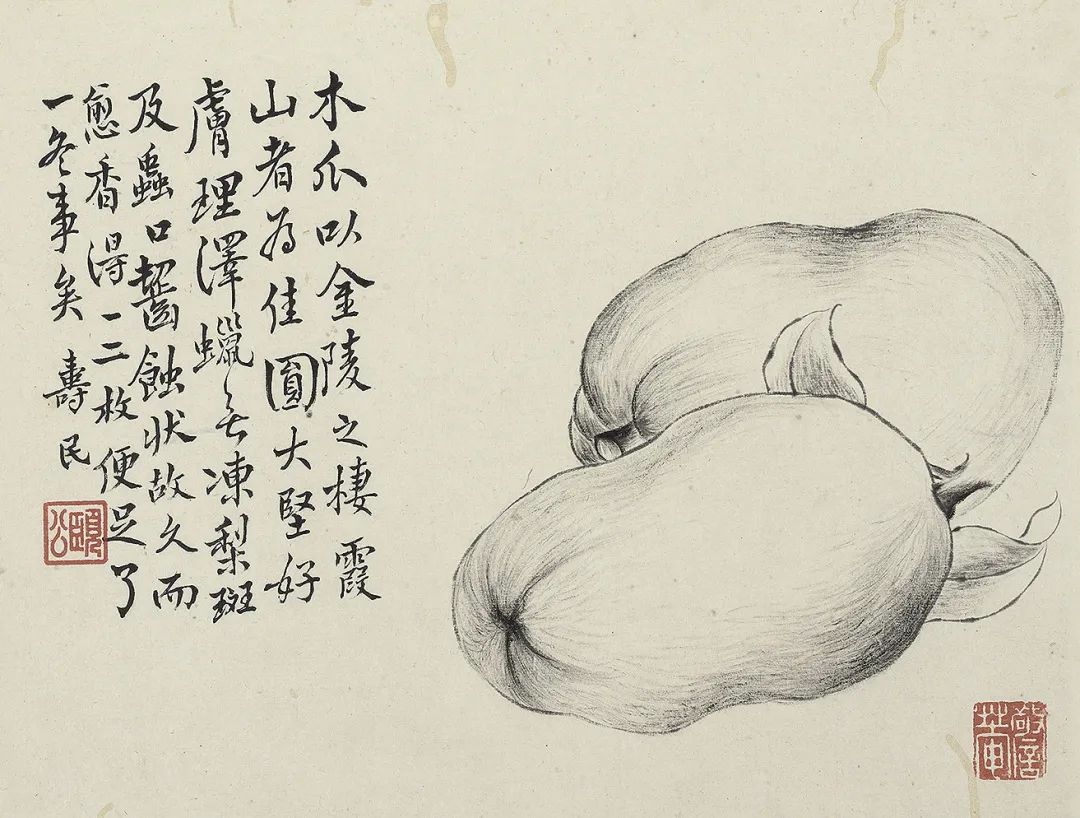 木瓜以金陵之棲霞
山者為佳圓大堅好
膚理澤蠟無凍梨斑
及蟲口齧蝕狀故久而
愈香得一二枚便足了
一冬事矣 壽民
頤公